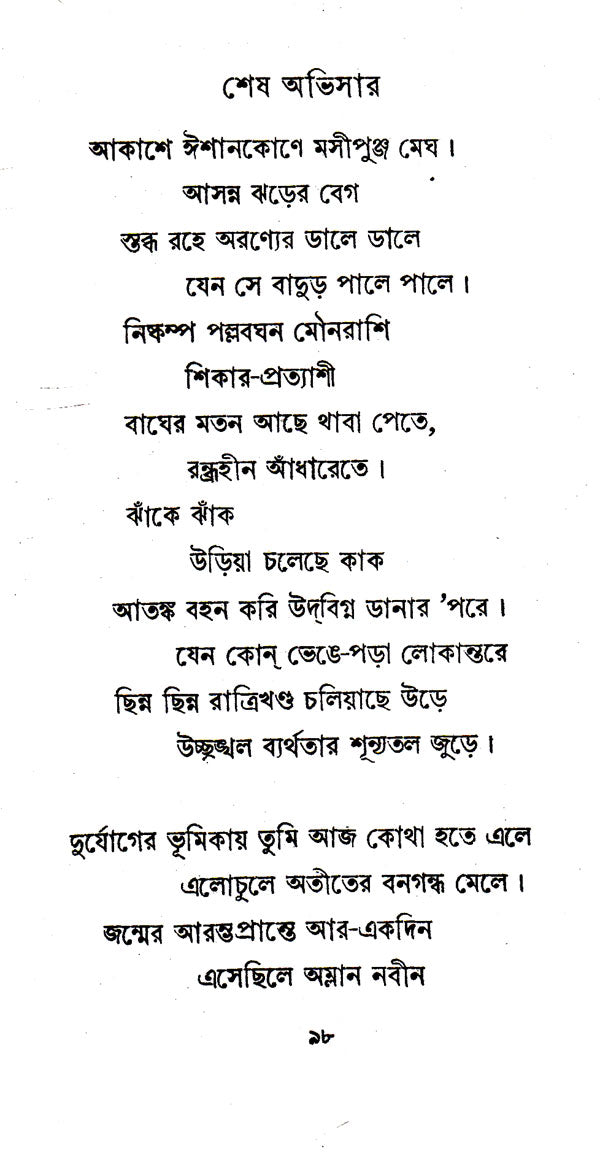 শেষ অভিসার
আকাশে ঈশানকোণে মসীপুঞ্জ মেঘ।
আসন্ন ঝড়ের বেগ
স্তব্ধ রহে অরণ্যের ডালে ডালে
যেন সে বাদুড় পালে পালে।
নিষ্কম্প পল্লবঘন মৌনরাশি
শিকার-প্রত্যাশী
বাঘের মতন আছে থাবা পেতে,
রন্ধ্রহীন আঁধারেতে।
ঝাঁকে ঝাঁক
উড়িয়া চলেছে কাক
আতঙ্ক বহন করি উদ্‌বিগ্ন ডানার 'পরে।
যেন কোন্ ভেঙে-পড়া লোকান্তরে
ছিন্ন ছিন্ন রাত্রিখণ্ড চলিয়াছে উড়ে
উচ্ছৃঙ্খল ব্যর্থতার শূন্যতল জুড়ে।
দুর্যোগের ভূমিকায় তুমি আজ কোথা হতে এলে
এলোচুলে অতীতের বনগন্ধ মেলে।
জন্মের আরম্ভপ্রান্তে আর-একদিন
এসেছিলে অম্লান নবীন
৯৮